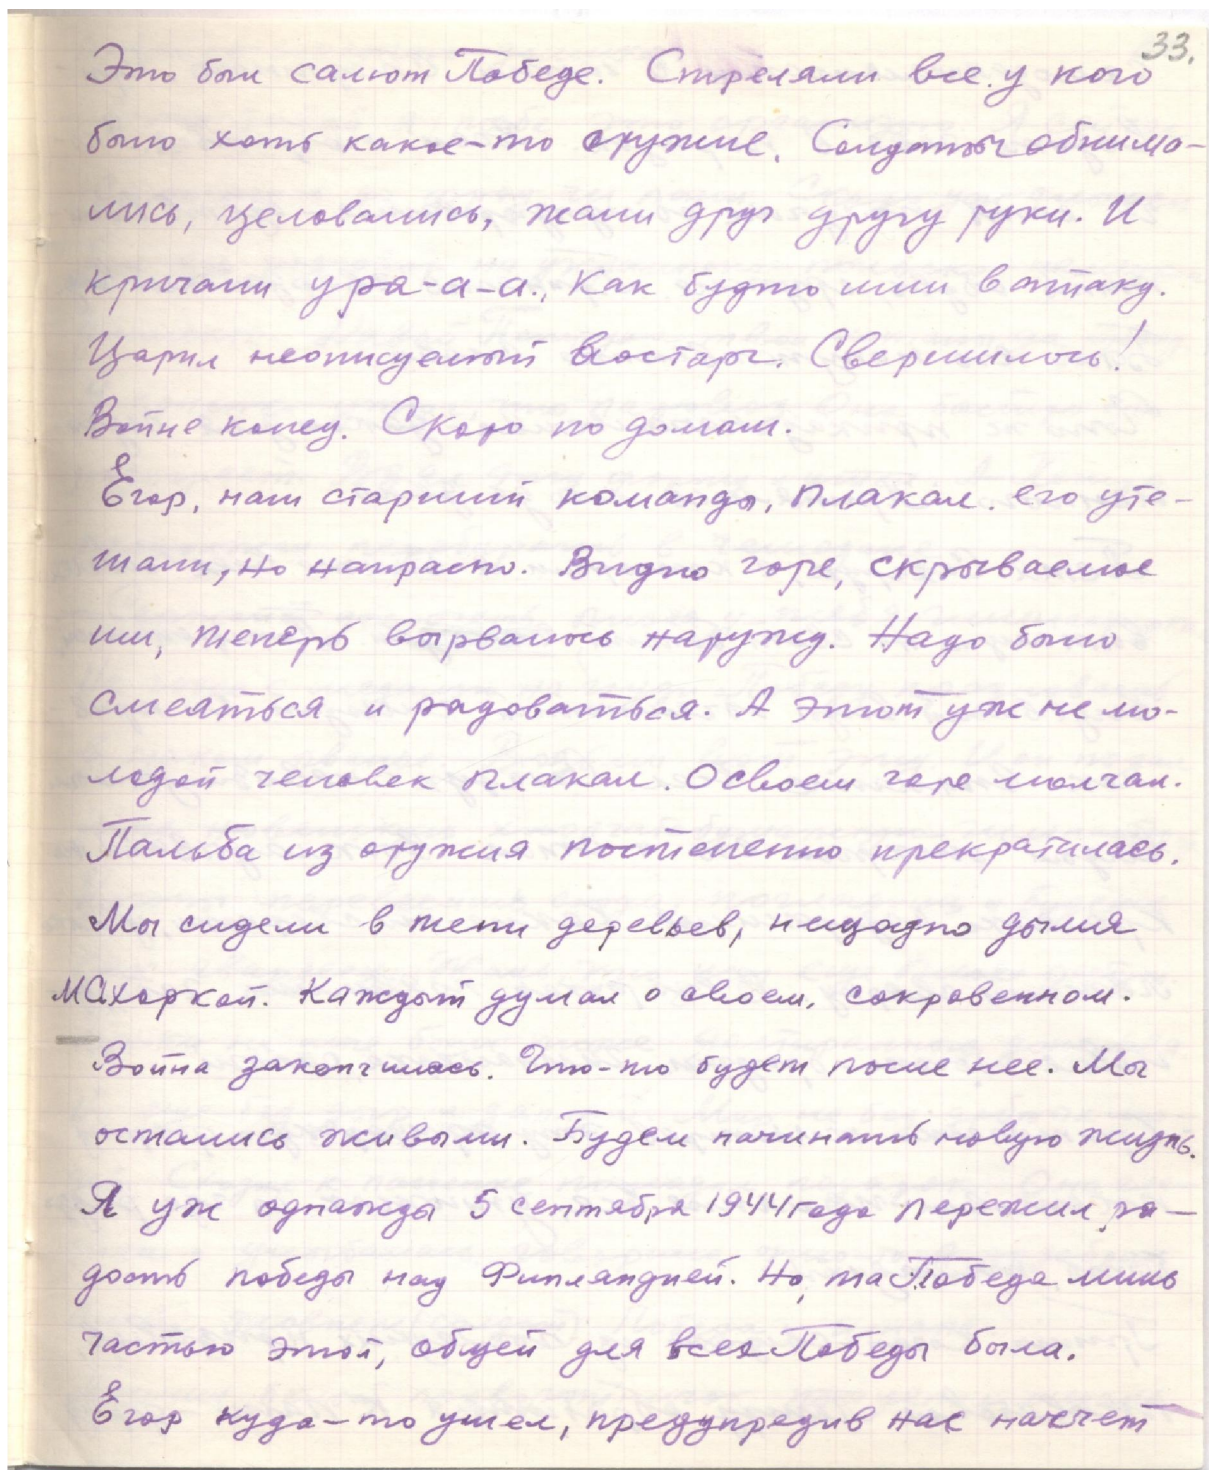 33.
Это был салют Победе. Стреляли все у кого
было хоть какое-то оружие. Солдаты обнима-
лись, целовались, жали друг другу руки. И
кричали ура-а-а., как будто шли в атаку.
Царил неописуемый восторг. Свершилось!
Войне конец. Скоро по домам.
Егор, наш старший команды, плакал. его уте-
шали, но напрасно. Видно горе, скрываемое
им, теперь вырвалось наружу. Надо было
смеяться и радоваться. А этот уж не мо-
лодой человек плакал. О своем горе молчал.
Пальба из оружия постепенно прекратилась.
Мы сидели в тени деревьев, нещадно дымя
махоркой. Каждый думал о своем, сокровенном.
Война закончилась. Что-то будет после нее. Мы
остались живыми. Будем начинать новую жизнь.
Я уж однажды 5 сентября 1944 года пережил ра-
дость победы над Финляндией. Но, та Победа лишь
частью этой, общей для всех Победы была.
Егор куда-то ушел, предупредив нас насчет